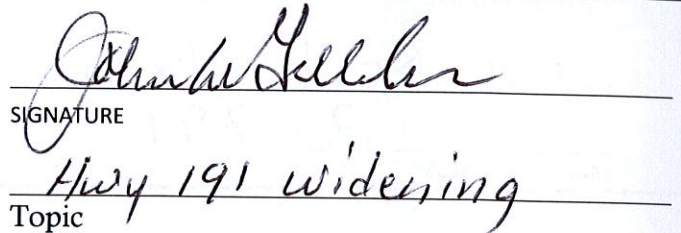 John W
SIGNATURE
Hwy 191 widening
Topic